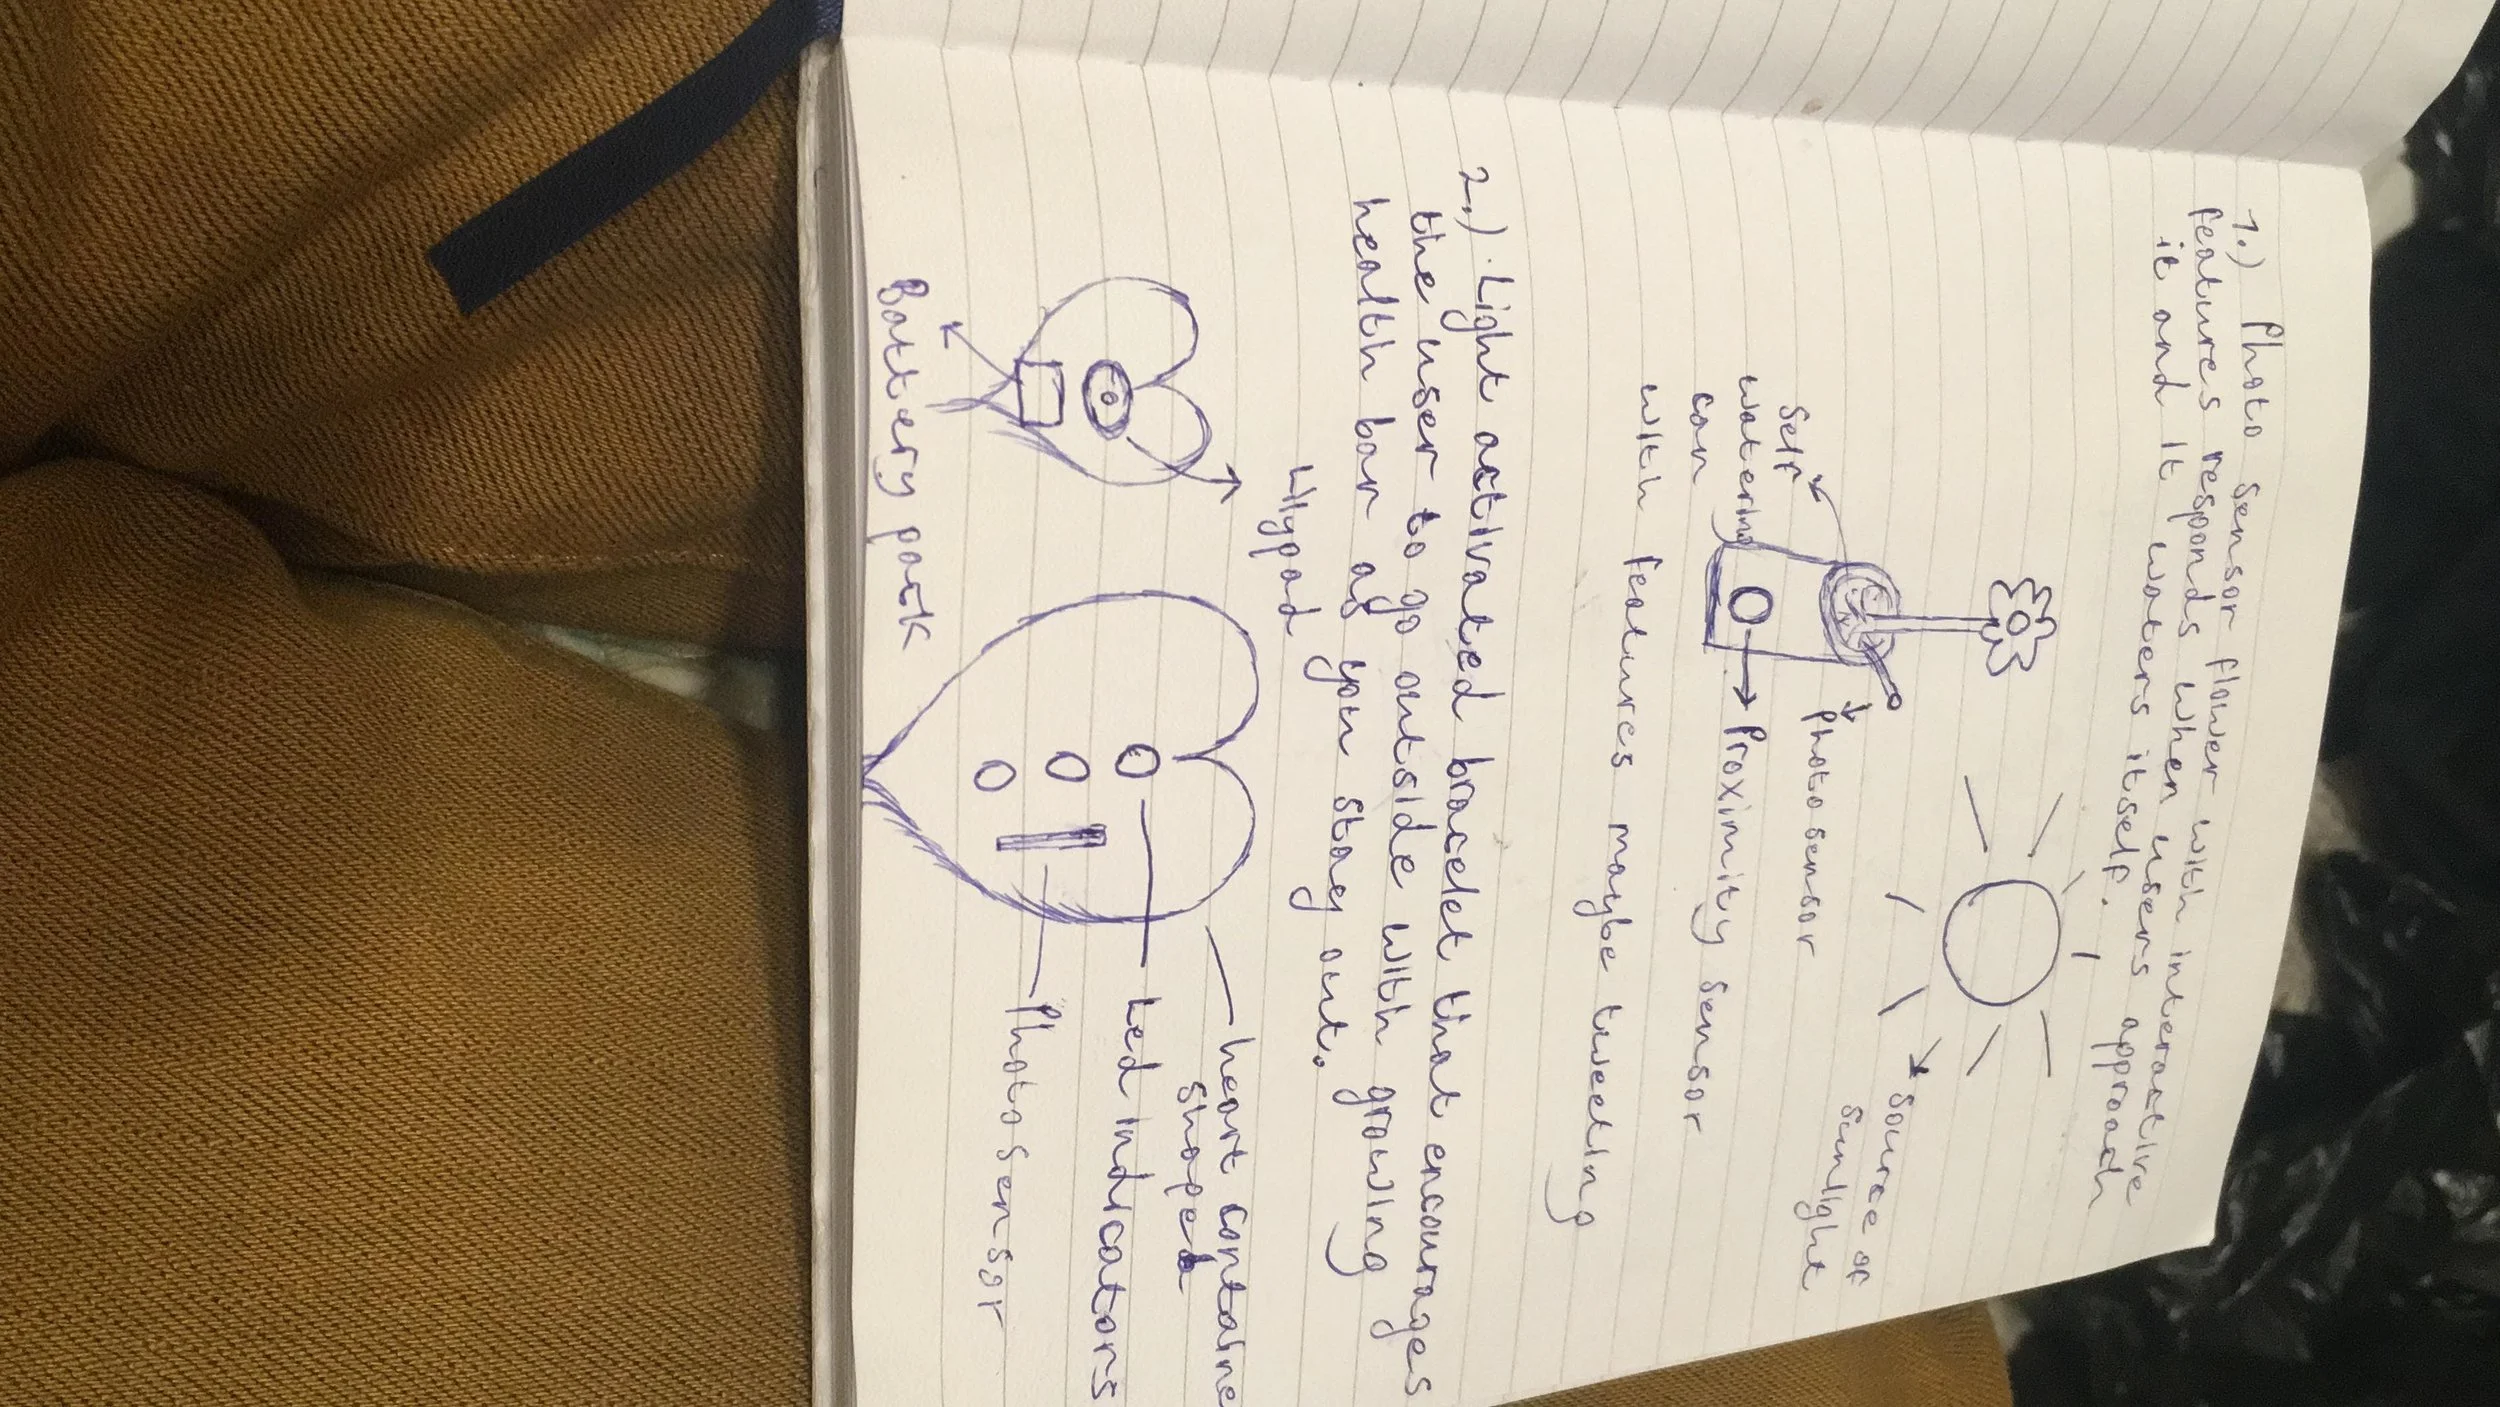 1.) Photo sensor flower with interactive
features responds when users approach
it and it waters itself.
source of
sunlight
self
watering
can
photosensor
Proximity sensor
with features maybe tweeting
2.) Light activated bracelet that encourages
the user to go outside with growing
health bar as you stay out.
Lilypad
Battery pack
heart containe
shaped
Led indicators
Photosensor